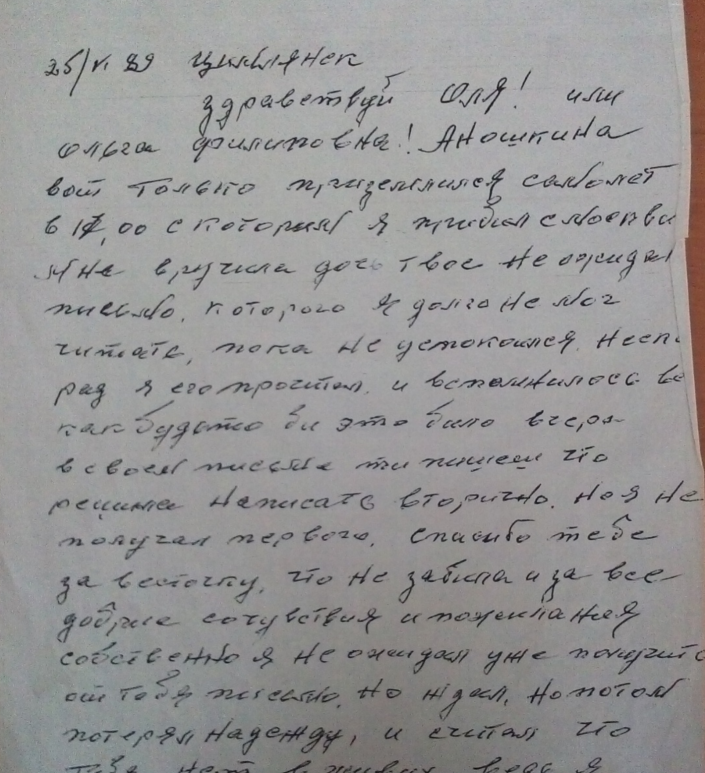 25/VI 89 Цимлянск
здравствуй Оля! или
Ольга Филиповна! Аношкина
вот только приземлился самолет
в 17,00 с которым я прибыл с Москви
мне вручила дочь твое не ожидал
письмо. которого я долго не мог
читать, пока не успокоился.
рад я его прочитал. и вспомнилось
как будто би это било вчера
в своем письме ти пишеш что
решила написать вторично. но я не
получал первого. спасибо тебе
за весточку, что не забила и за все
добрие сочувствия и пожелания
собственно я не ожидал уже получить
от тебя письмо. но ждал, но потом
потерял надежду, и считал что
тебя нет в живих ведь я